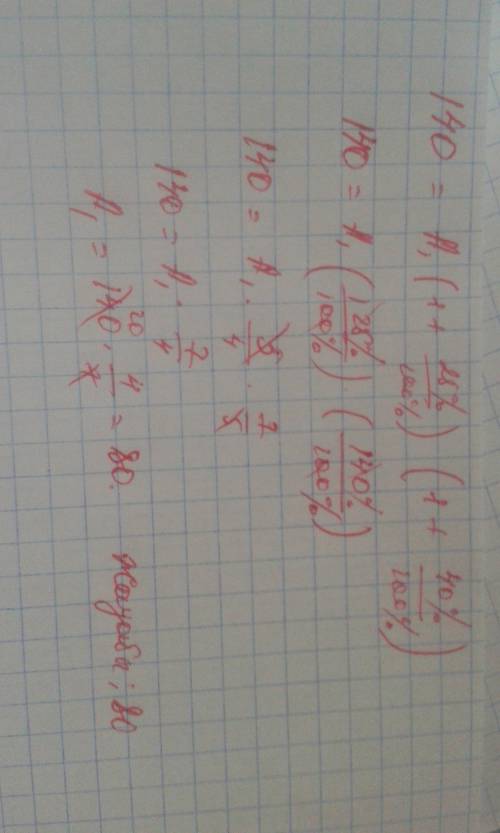 140 = A₁ (1 + 25%/100%) (1 + 40%/100%)
140 = A₁ (125%/100%) (140%/100%)
140 = A₁ · 5/4 · 7/5
140 = A₁ · 7/4
A₁ = 140 20 · 4/7 = 80. Жауабы: 80